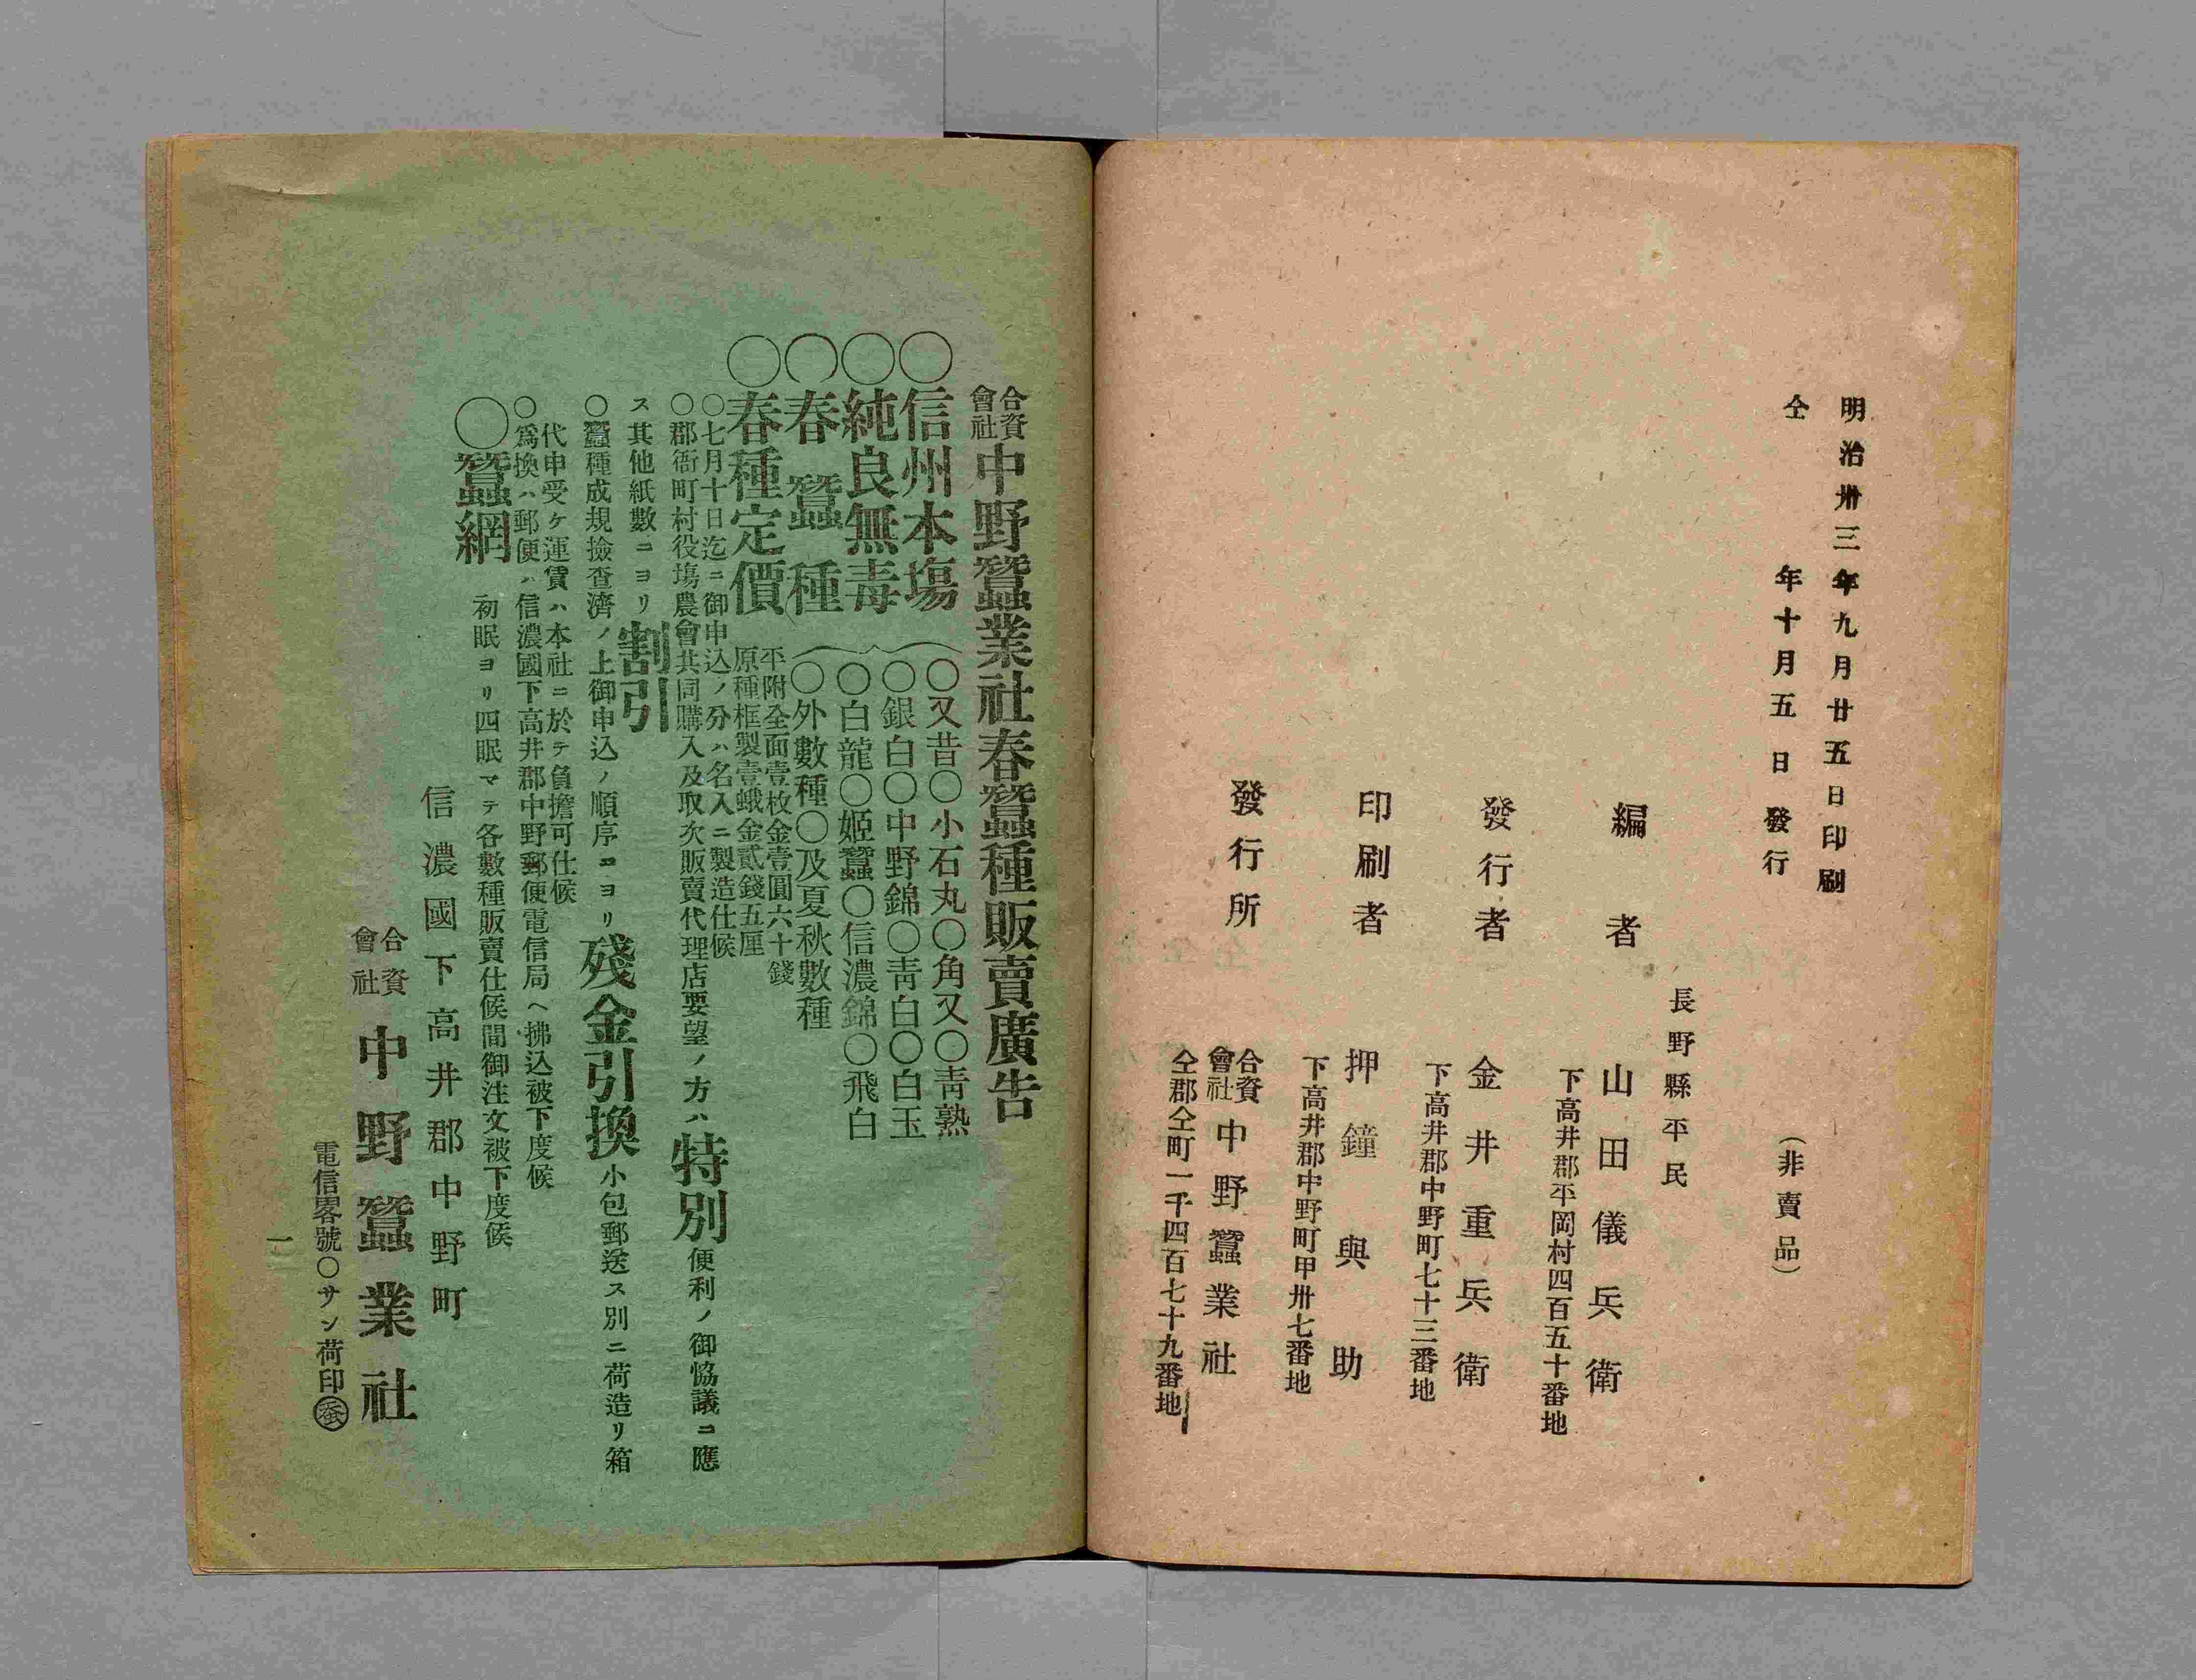 明治卅三年九月廿五日印刷
仝年十月五日發行
（非賣品）
長野縣平民
編者　山田儀兵衛
下高井郡平岡村四百五十番地
發行者　金井重兵衛
下高井郡中野町七十三番地
印刷者　押鐘與助
下高井郡中野町甲卅七番地
發行所　合資會社中野蠶業社
仝郡仝町一千四百七十九番地
合資會社中野蠶業社春蠶種販賣廣告
○信州本塲
○純良無毒
○春蠶種
○又昔○小石丸○角又○青熟
○銀白○中野錦○青白○白玉
○白龍○姬蠶○信濃錦○飛白
○外數種○及夏秋數種
○春種定價
平附全面壹枚金壹圓六十錢
原種框製壹蛾金貳錢五厘
○七月十日迄ニ御申込ノ分ハ名入ニ製造仕候
○郡衙町村役塲農會共同購入及取次販賣代理店要望ノ方ハ特別便利ノ御恊議ニ應
ス其他紙數ニヨリ割引
○蠶種成規撿查濟ノ上御申込ノ順序ニヨリ殘金引換小包郵送ス別ニ荷造リ箱
代申受ケ運賃ハ本社ニ於テ負擔可仕候
○爲換ハ郵便ハ信濃國下高井郡中野郵便電信局ヘ拂込被下度候
○蠶網　初眠ヨリ四眠マテ各數種販賣仕候間御注文被下度候
信濃國下高井郡中野町
合資會社中野蠶業社
電信畧號○サン荷印㊎蚕
一